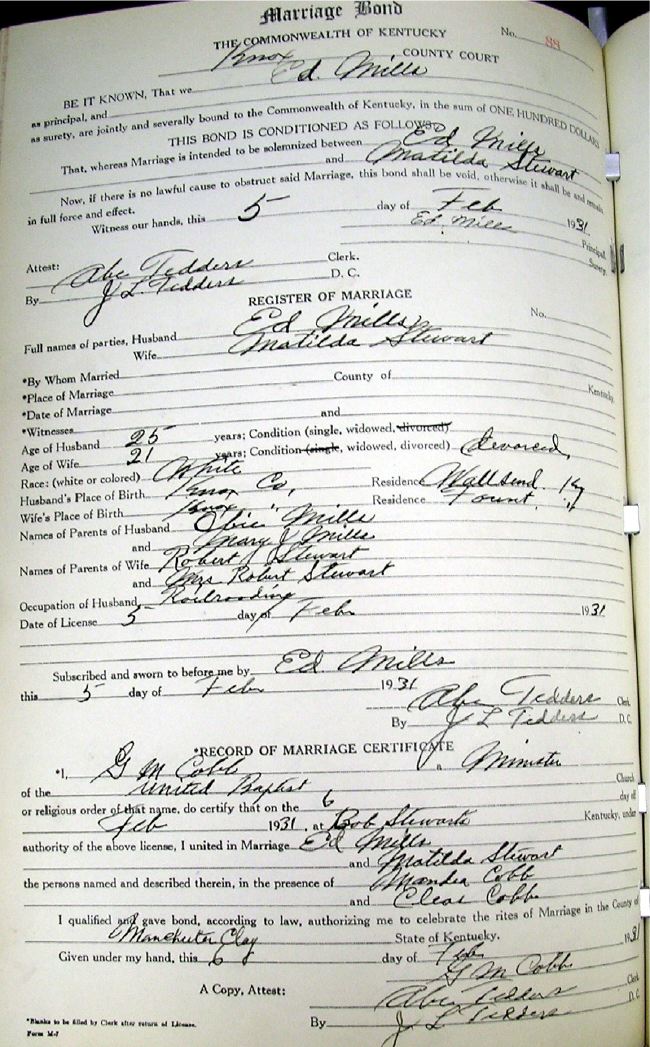 Marriage Bond
THE COMMONWEALTH OF KENTUCKY No. 88
Knox COUNTY COURT
BE IT KNOWN, That we Ed. Mills
as principal, and
as surety, are jointly and severally bound to the Commonwealth of Kentucky, in the sum of ONE HUNDRED DOLLARS
THIS BOND IS CONDITIONED AS FOLLOWS:
That, whereas Marriage is intended to be solemnized between Ed Mills
and Matilda Stewart
Now, if there is no lawful cause to obstruct said Marriage, this bond shall be void, otherwise it shall be and remain
in full force and effect.
Witness our hands, this 5 day of Feb 1931
Ed. Mills Principal.
Surety.
Attest: Abe Tedders Clerk.
By J L Tedders D. C.
REGISTER OF MARRIAGE
No.
Full names of parties, Husband Ed Mills
Wife Matilda Stewart
*By Whom Married
*Place of Marriage County of Kentucky.
*Date of Marriage
*Witnesses and
Age of Husband 25 years; Condition (single, widowed, divorced)
Age of Wife 21 years; Condition (single, widowed, divorced) devorced,
Race: (white or colored) White
Husband's Place of Birth Knox Co, Residence Wallsend Ky
Wife's Place of Birth Knox " Residence Fount. "
Names of Parents of Husband Obie Mills
and Mary J Mills
Names of Parents of Wife Robert Stewart
and Mrs Robert Stewart
Occupation of Husband Railroading
Date of License 5 day of Feb 1931
Subscribed and sworn to before me by Ed Mills
this 5 day of Feb 1931
Abe Tedders Clerk
By J L Tedders D. C.
*RECORD OF MARRIAGE CERTIFICATE
*I, G M Cobb a Minister
of the United Baptist Church
or religious order of that name, do certify that on the 6 day of
Feb 1931, at Bob Stewarts Kentucky, under
authority of the above license, I united in Marriage Ed Mills
and Matilda Stewart
the persons named and described therein, in the presence of Mandea Cobb
and Cleas Cobb
I qualified and gave bond, according to law, authorizing me to celebrate the rites of Marriage in the County of
Manchester Clay State of Kentucky.
Given under my hand, this 6 day of Feb 1931
G M Cobb
A Copy, Attest: Abe Tedders Clerk
By J L Tedders D. C.
*Blanks to be filed by Clerk after return of License.
Form M-7